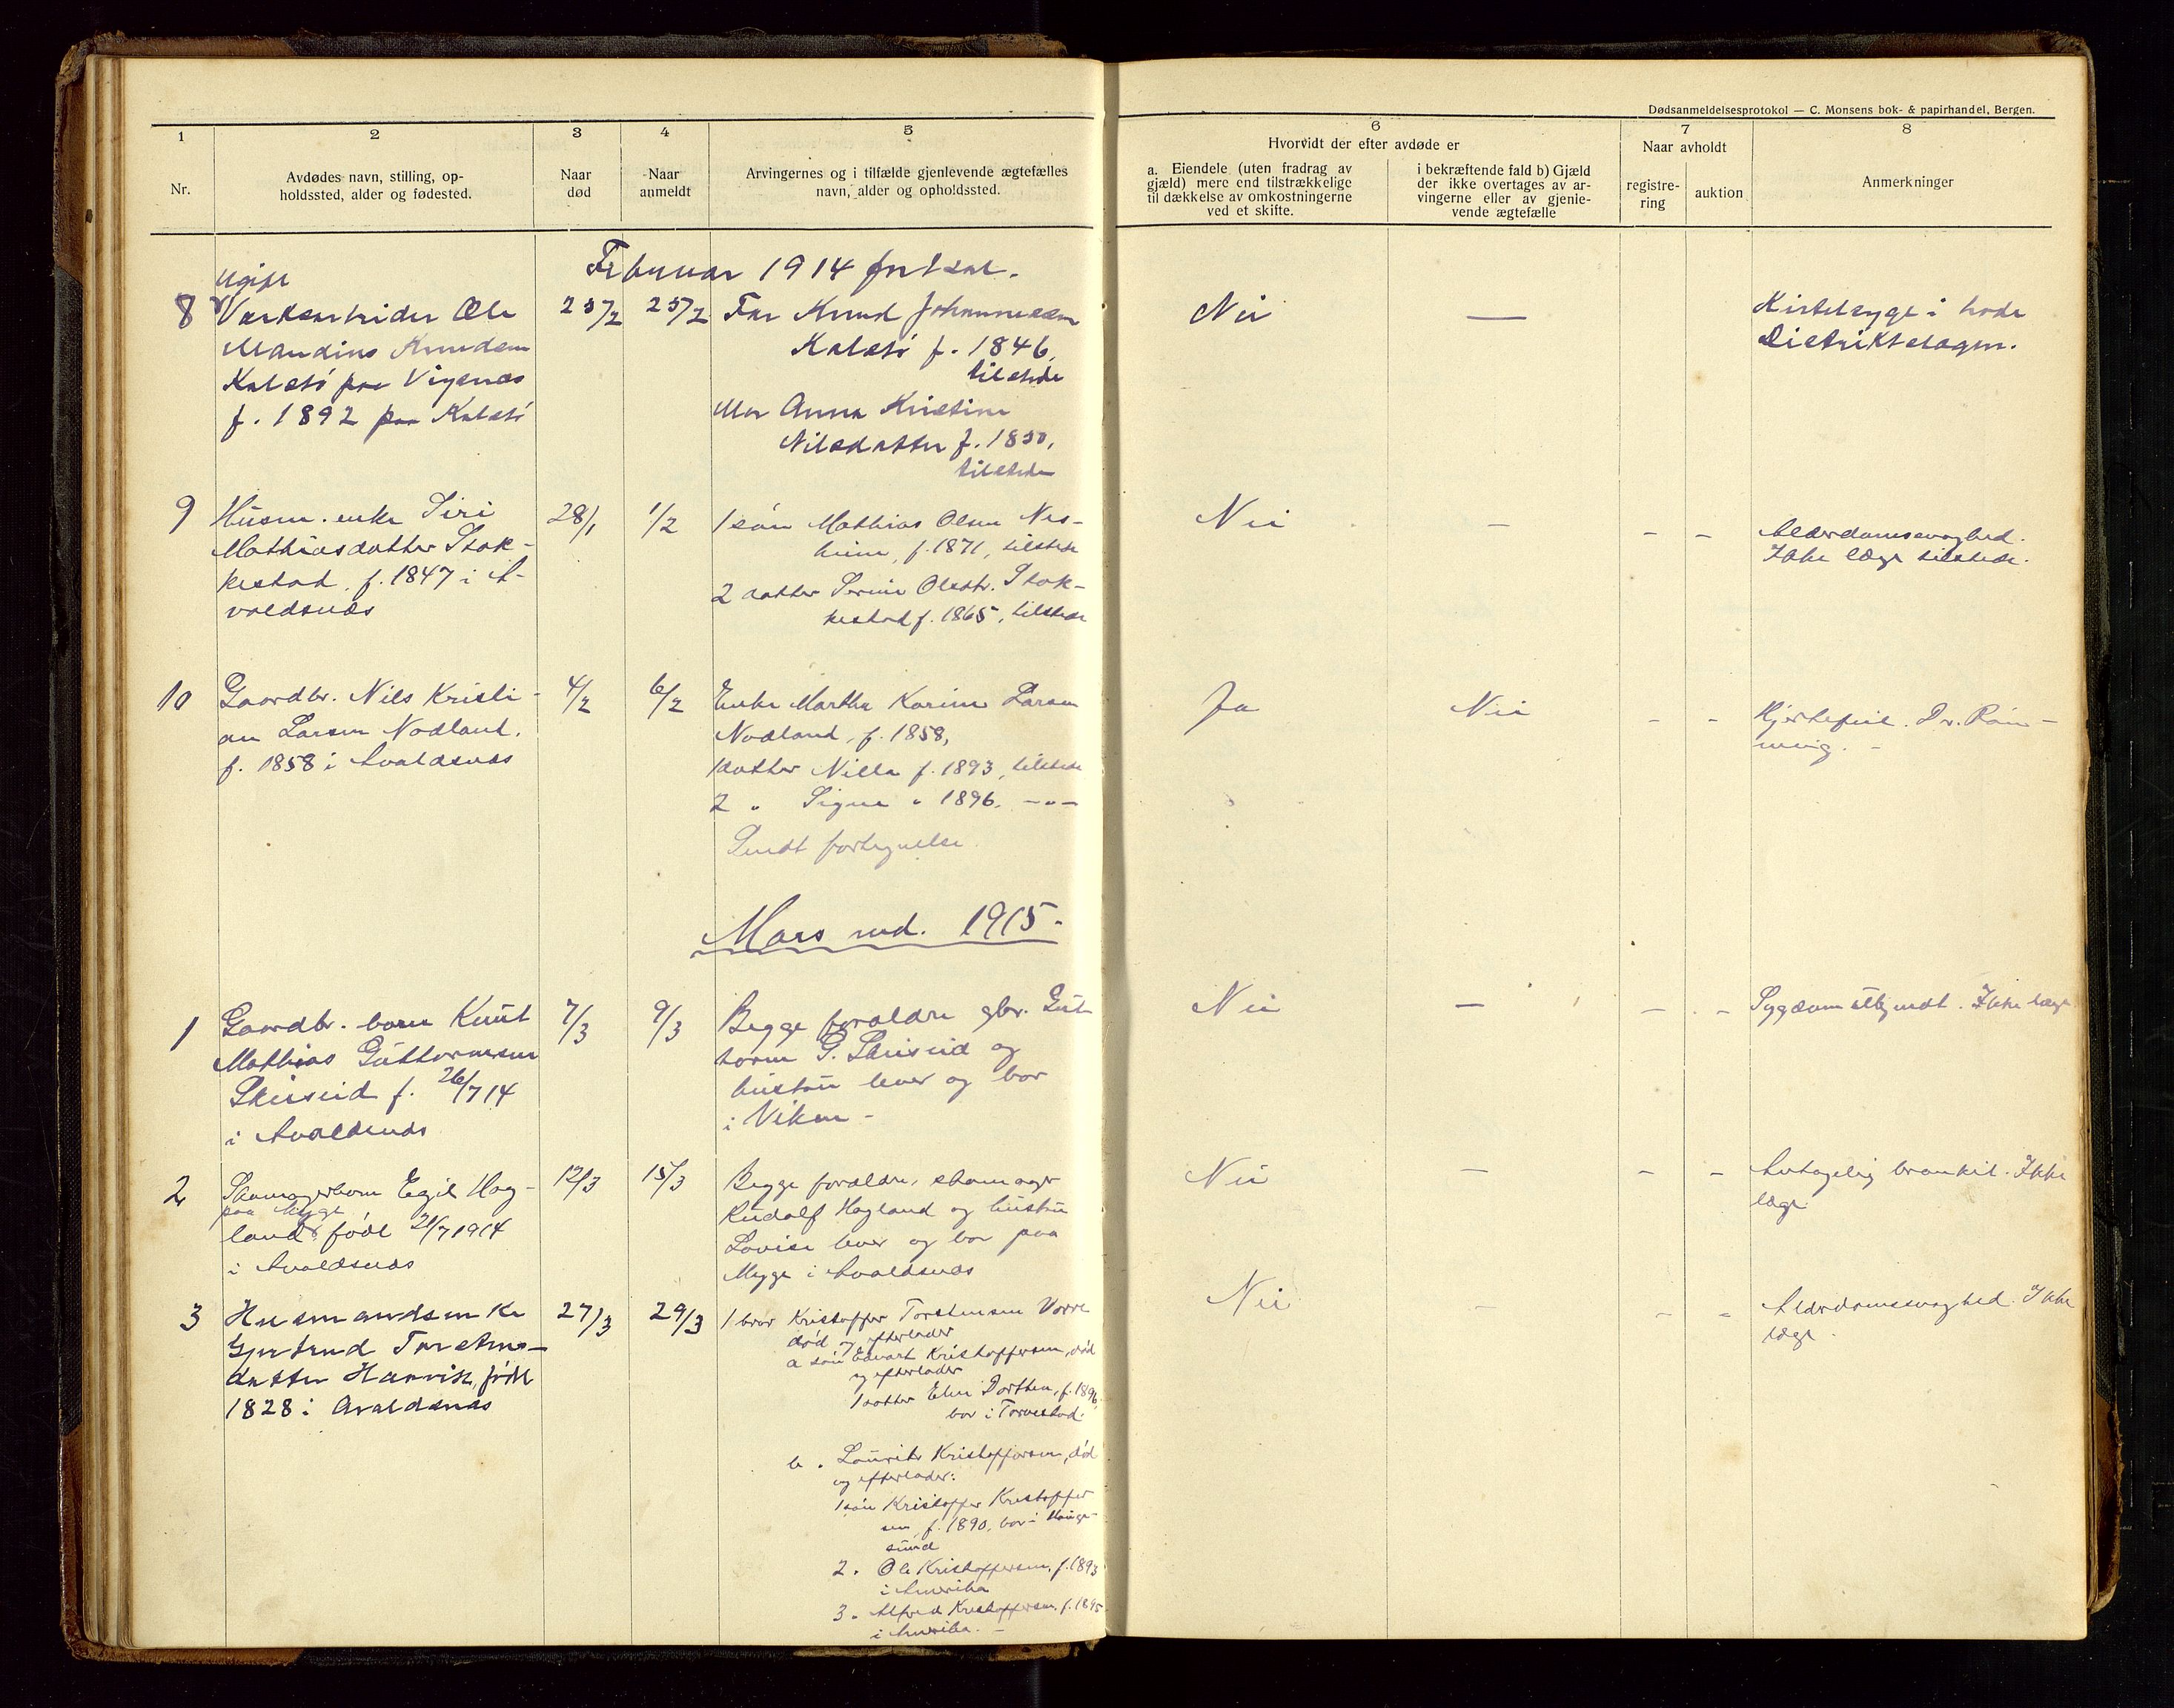 Dødsanmeldelsesprotokol — C. Monsens bok- & papirhandel, Bergen.
1
2
3
4
5
6
7
8
Nr.
Avdødes navn, stilling, op-
holdssted, alder og fødested.
Naar
død
Naar
anmeldt
Arvingernes og i tilfælde gjenlevende ægtefælles
navn, alder og opholdssted.
Hvorvidt der efter avdøde er
a. Eiendele (uten fradrag av
gjæld) mere end tilstrækkelige
til dækkelse av omkostningerne
ved et skifte.
i bekræftende fald b) Gjæld
der ikke overtages av ar-
vingerne eller av gjenle-
vende ægtefælle
Naar avholdt
registre-
ring
auktion
Anmerkninger
Februar 1914 fortsat.
8
ugift
Ole
Mandius Knudsen
Kalstø paa Vigenæs
f. 1892 paa Kalstø
25/2
25/2
Far Knud Johannessen
Kalstø f. 1846,
tilstede
Mor Anna Kristine
Nilsdatter f. 1850,
tilstede
Nei
—
Kirtelsyge i hode
Distriktslægen.
9
Husm. enke Siri
Mathiasdatter Stok-
kestad, f. 1847 i A-
valdsnæs
28/1
1/2
1 søn Mathias Olsen Nes-
heim, f. 1871, tilstede
2 datter Serine Olsdtr. Stok-
kestad f. 1865, tilstede
Nei
–
– –
Alderdomssvaghed.
Ikke læge tilstede.
10
Gaardbr. Nils Kristi-
an Larsen Nodland,
f. 1858 i Avaldsnæs
4/2
6/2
Enke Martha Karine Larsen
Nodland, f. 1858,
1 datter Nilla f. 1893, tilstede
2 " Signe " 1896. –"–
Sendt fortegnelse
Ja
Nei
– –
Hjertefeil. Dr. Røn-
ning. –
Mars md. 1915.
1
Gaardbr. barn Knut
Mathias Guttormsen
Skeiseid f. 26/7 14
i Avaldsnæs
7/3
9/3
Begge foraldre gbr. Gut
torm G. Skeiseid og
hustru lever og bor
i Viken –
Nei
–
– –
Sygdom ubkjendt. Ikke læge
2
Skomagerbarn Egil Hag-
paa Mygge
land født 21/7 1914
i Avaldsnæs
12/3
15/3
Begge foraldre, skomager
Rudolf Hagland og hustru
Lovise lever og bor paa
Mygge i Avaldsnæs
Nei
–
– –
Antagelig bronkit. Ikke
læge
3
Husmandsenke
Gjertrud Torstens-
datter Hauvik, født
1828 i Avaldsnæs
27/3
29/3
1 bror Kristoffer Torstensen Vorre
død og efterlader
a søn Edvart Kristoffersen, død
og efterlader
1 datter Elen Dorthea, f. 1896,
bor i Torvestad.
b " Lauritz Kristoffersen, død
og efterlader:
1 søn Kristoffer Kristoffer
sen, f. 1890, bor i Hauge-
sund
2 " Ole Kristoffersen, f. 1893
i Amerika
3 " Alfred Kristoffersen, f. 1895
i Amerika. –
Nei
–
– –
Alderdomssvaghed. Ikke
læge.